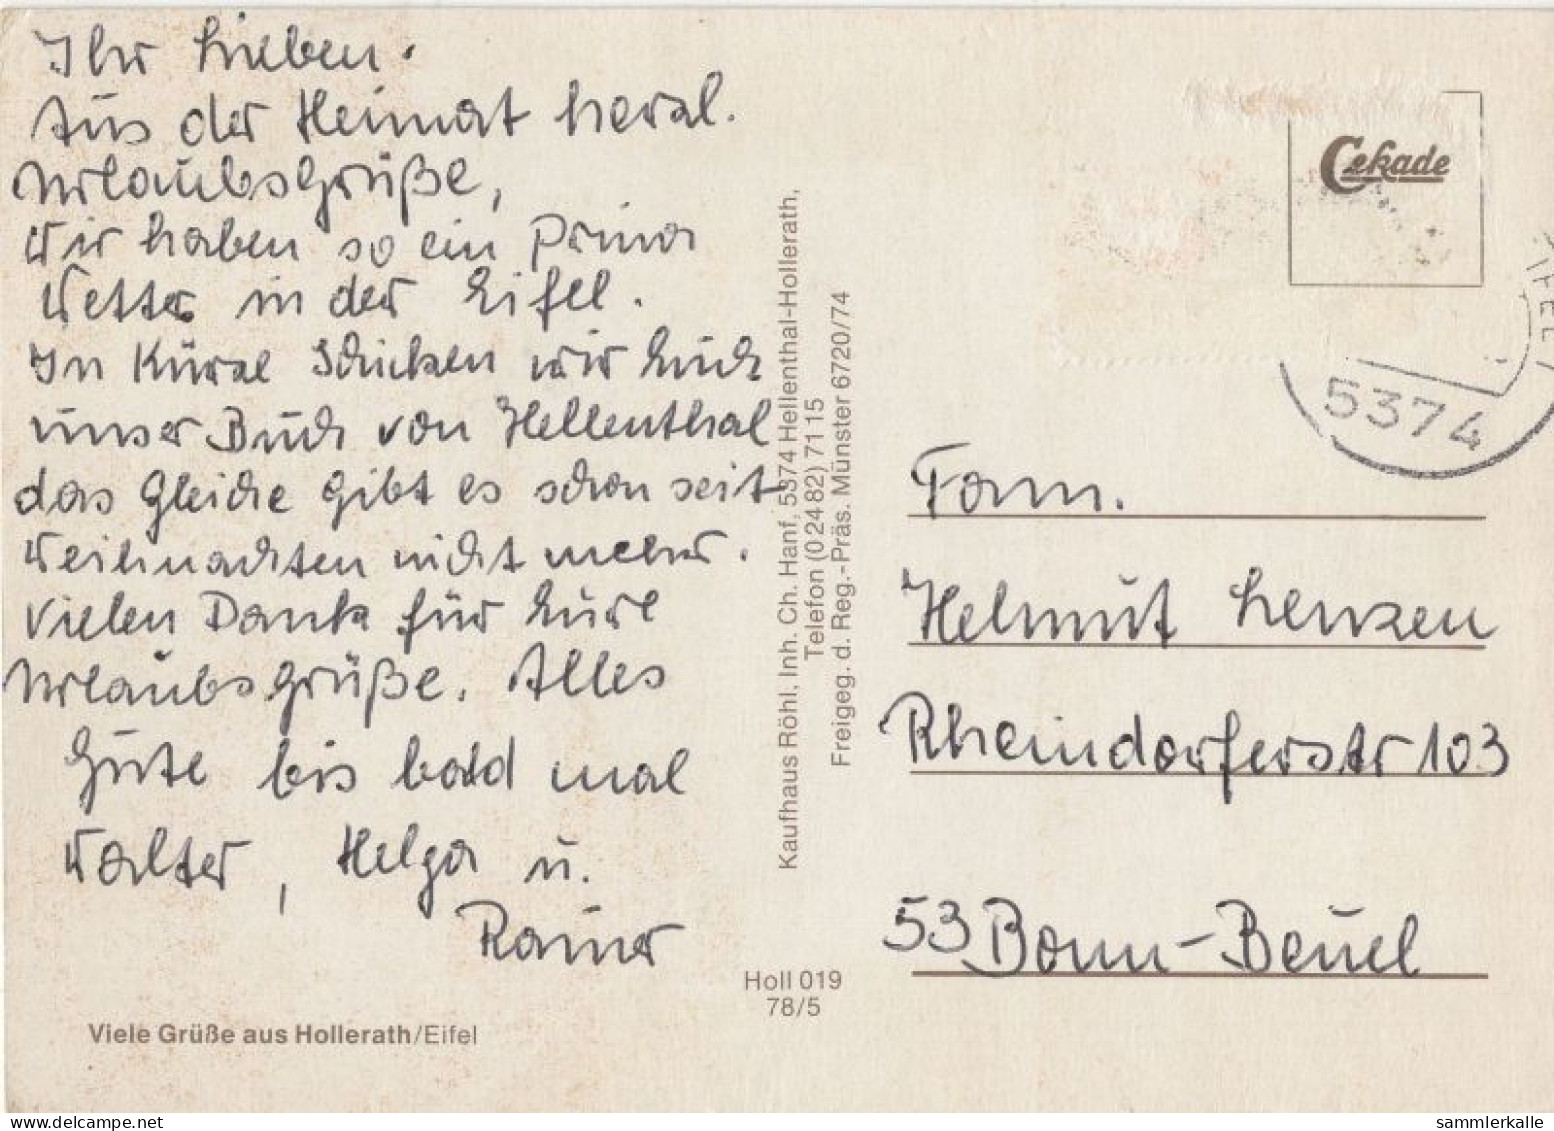 Ihr Lieben.
Aus der Heimat herzl.
Urlaubsgrüße,
Wir haben so ein prima
Wetter in der Eifel.
In Kürze schicken wir Euch
unser Buch von Hellenthal
das Gleiche gibt es schon seit
Weihnachten nicht mehr.
Vielen Dank für Eure
Urlaubsgrüße. Alles
Gute bis bald mal
Walter, Helga u.
Rainer
Viele Grüße aus Hollerath/Eifel
Kaufhaus Röhl, Inh. Ch. Hanf, 5374 Hellenthal-Hollerath,
Telefon (0 24 82) 71 15
Freigeg. d. Reg.-Präs. Münster 6720/74
Holl 019
78/5
Cekade
5374
Fam.
Helmut Lenzen
Rheindorferstr 103
53 Bonn-Beuel
delcampe.net
sammlerkalle